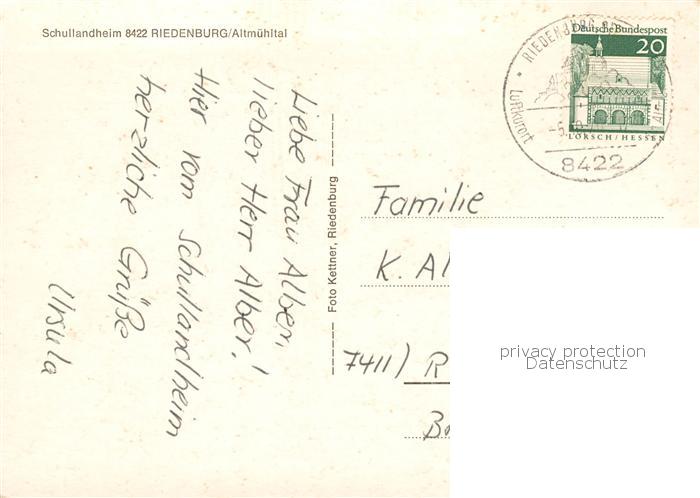 Schullandheim 8422 RIEDENBURG/Altmühltal
Liebe Frau Alber,
lieber Herr Alber!
Hier vom Schullandheim
herzliche Grüße
Ursula
Foto Kettner, Riedenburg
RIEDENBURG
Luftkurort
8422
Deutsche Bundespost
20
LORSCH/HESSEN
Familie
K. Al
7411) R
privacy protection
Datenschutz